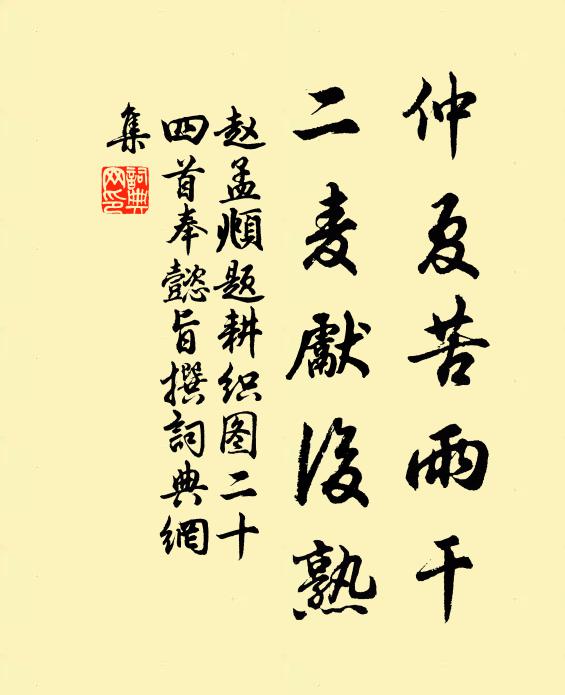 仲夏苦雨干
二麦獻後熟
赵孟頫题耕织图二十
四首奉懿旨撰詞典網
集
詞典
网印